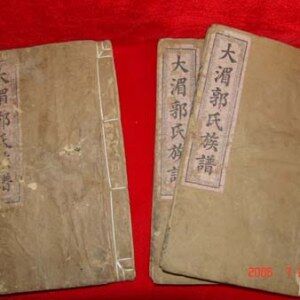 大湄郭氏族譜
大湄郭氏族譜
大湄郭氏族譜
2006